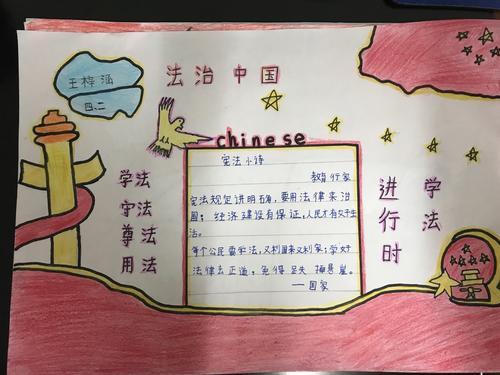 王梓涵
四、二
法治中国
chinese
学法
守法
尊法
用法
宪法小诗
教育行家
宪法规定讲明确，要用法律来治
国；经济建设有保证，人民才有好生
活。
每个公民需学法，又利国来又利家；学好
法律去正道，免得足失掉悬崖。
——国家
学法
进行时